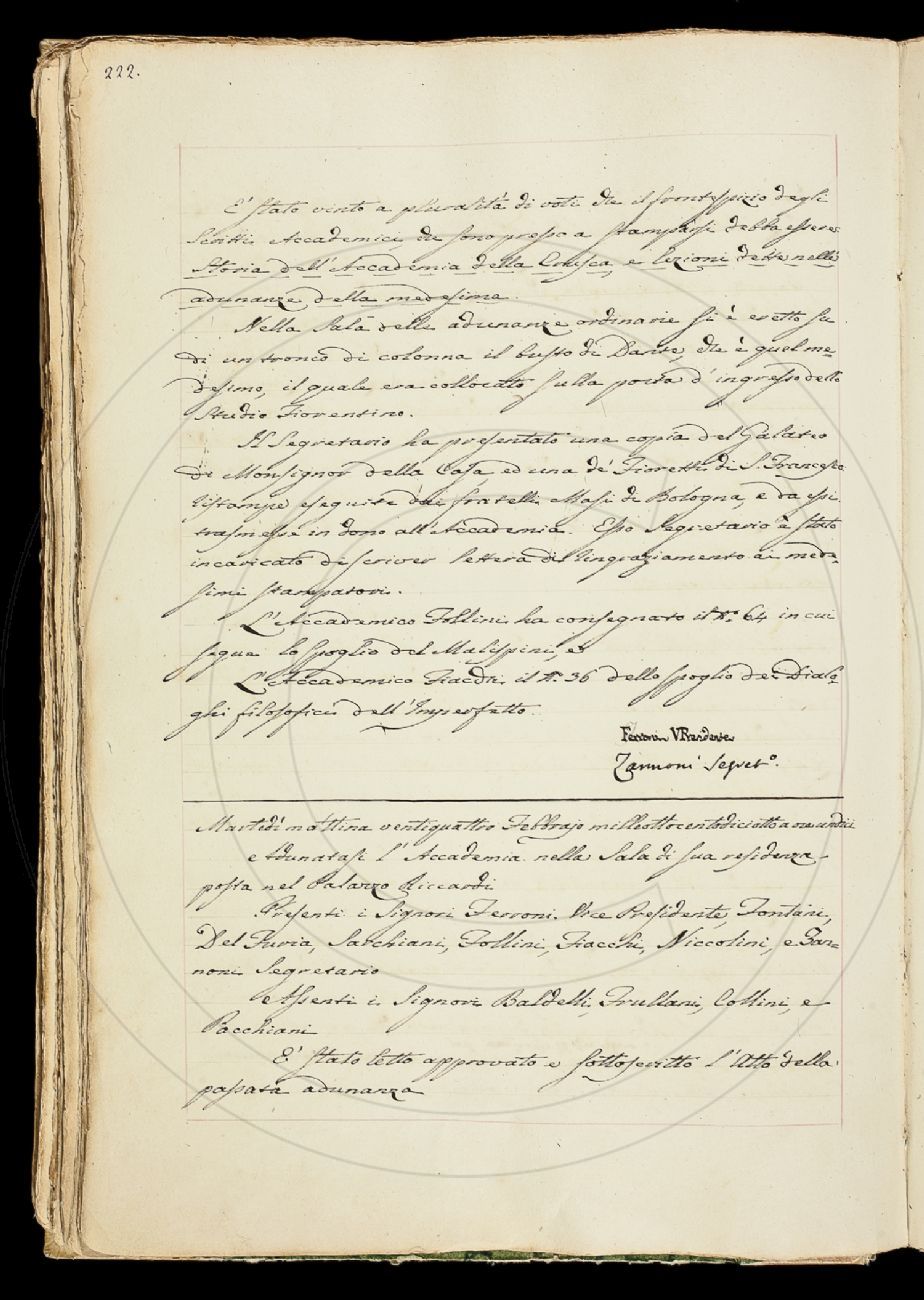 222.
E' stato vinto a pluralità di voti che il frontespizio degli
Scritti Accademici che sono presso a stamparsi debba essere
Storia dell'Accademia della Crusca, e Lezioni dette nelle
adunanze della medesima.
Nella Sala delle adunanze ordinarie si è eretto su
di un tronco di colonna il busto di Dante, che è quel me=
desimo, il quale era collocato sulla porta d'ingresso dello
Studio Fiorentino.
Il Segretario ha presentato una copia del Galateo
di Monsignor della Casa, ed una de' Fioretti di S. Francesco
ristampe eseguite dai fratelli Masi di Bologna, e da essi
trasmesse in dono all'Accademia. Esso Segretario è stato
incaricato di scriver lettera di ringraziamento ai mede=
simi stampatori.
L'Accademico Follini ha consegnato il N.º 64 in cui
segue lo spoglio del Malispini, e
L'Accademico Fiacchi il N. 36 dello spoglio dei Dialo=
ghi filosofici dell'Imperfetto.
Ferroni V. Presidente
Zannoni Segret.º
Martedì mattina ventiquattro Febbrajo milleottocentodiciotto a ore undici
Adunatasi l'Accademia nella Sala di sua residenza
posta nel Palazzo Riccardi
Presenti i Signori Ferroni Vice Presidente, Fontani,
Del Furia, Sarchiani, Follini, Fiacchi, Niccolini, e Zan=
noni Segretario
Assenti i Signori Baldelli, Frullani, Collini, e
Pacchiani
E' stato letto approvato e sottoscritto l'Atto della
passata adunanza